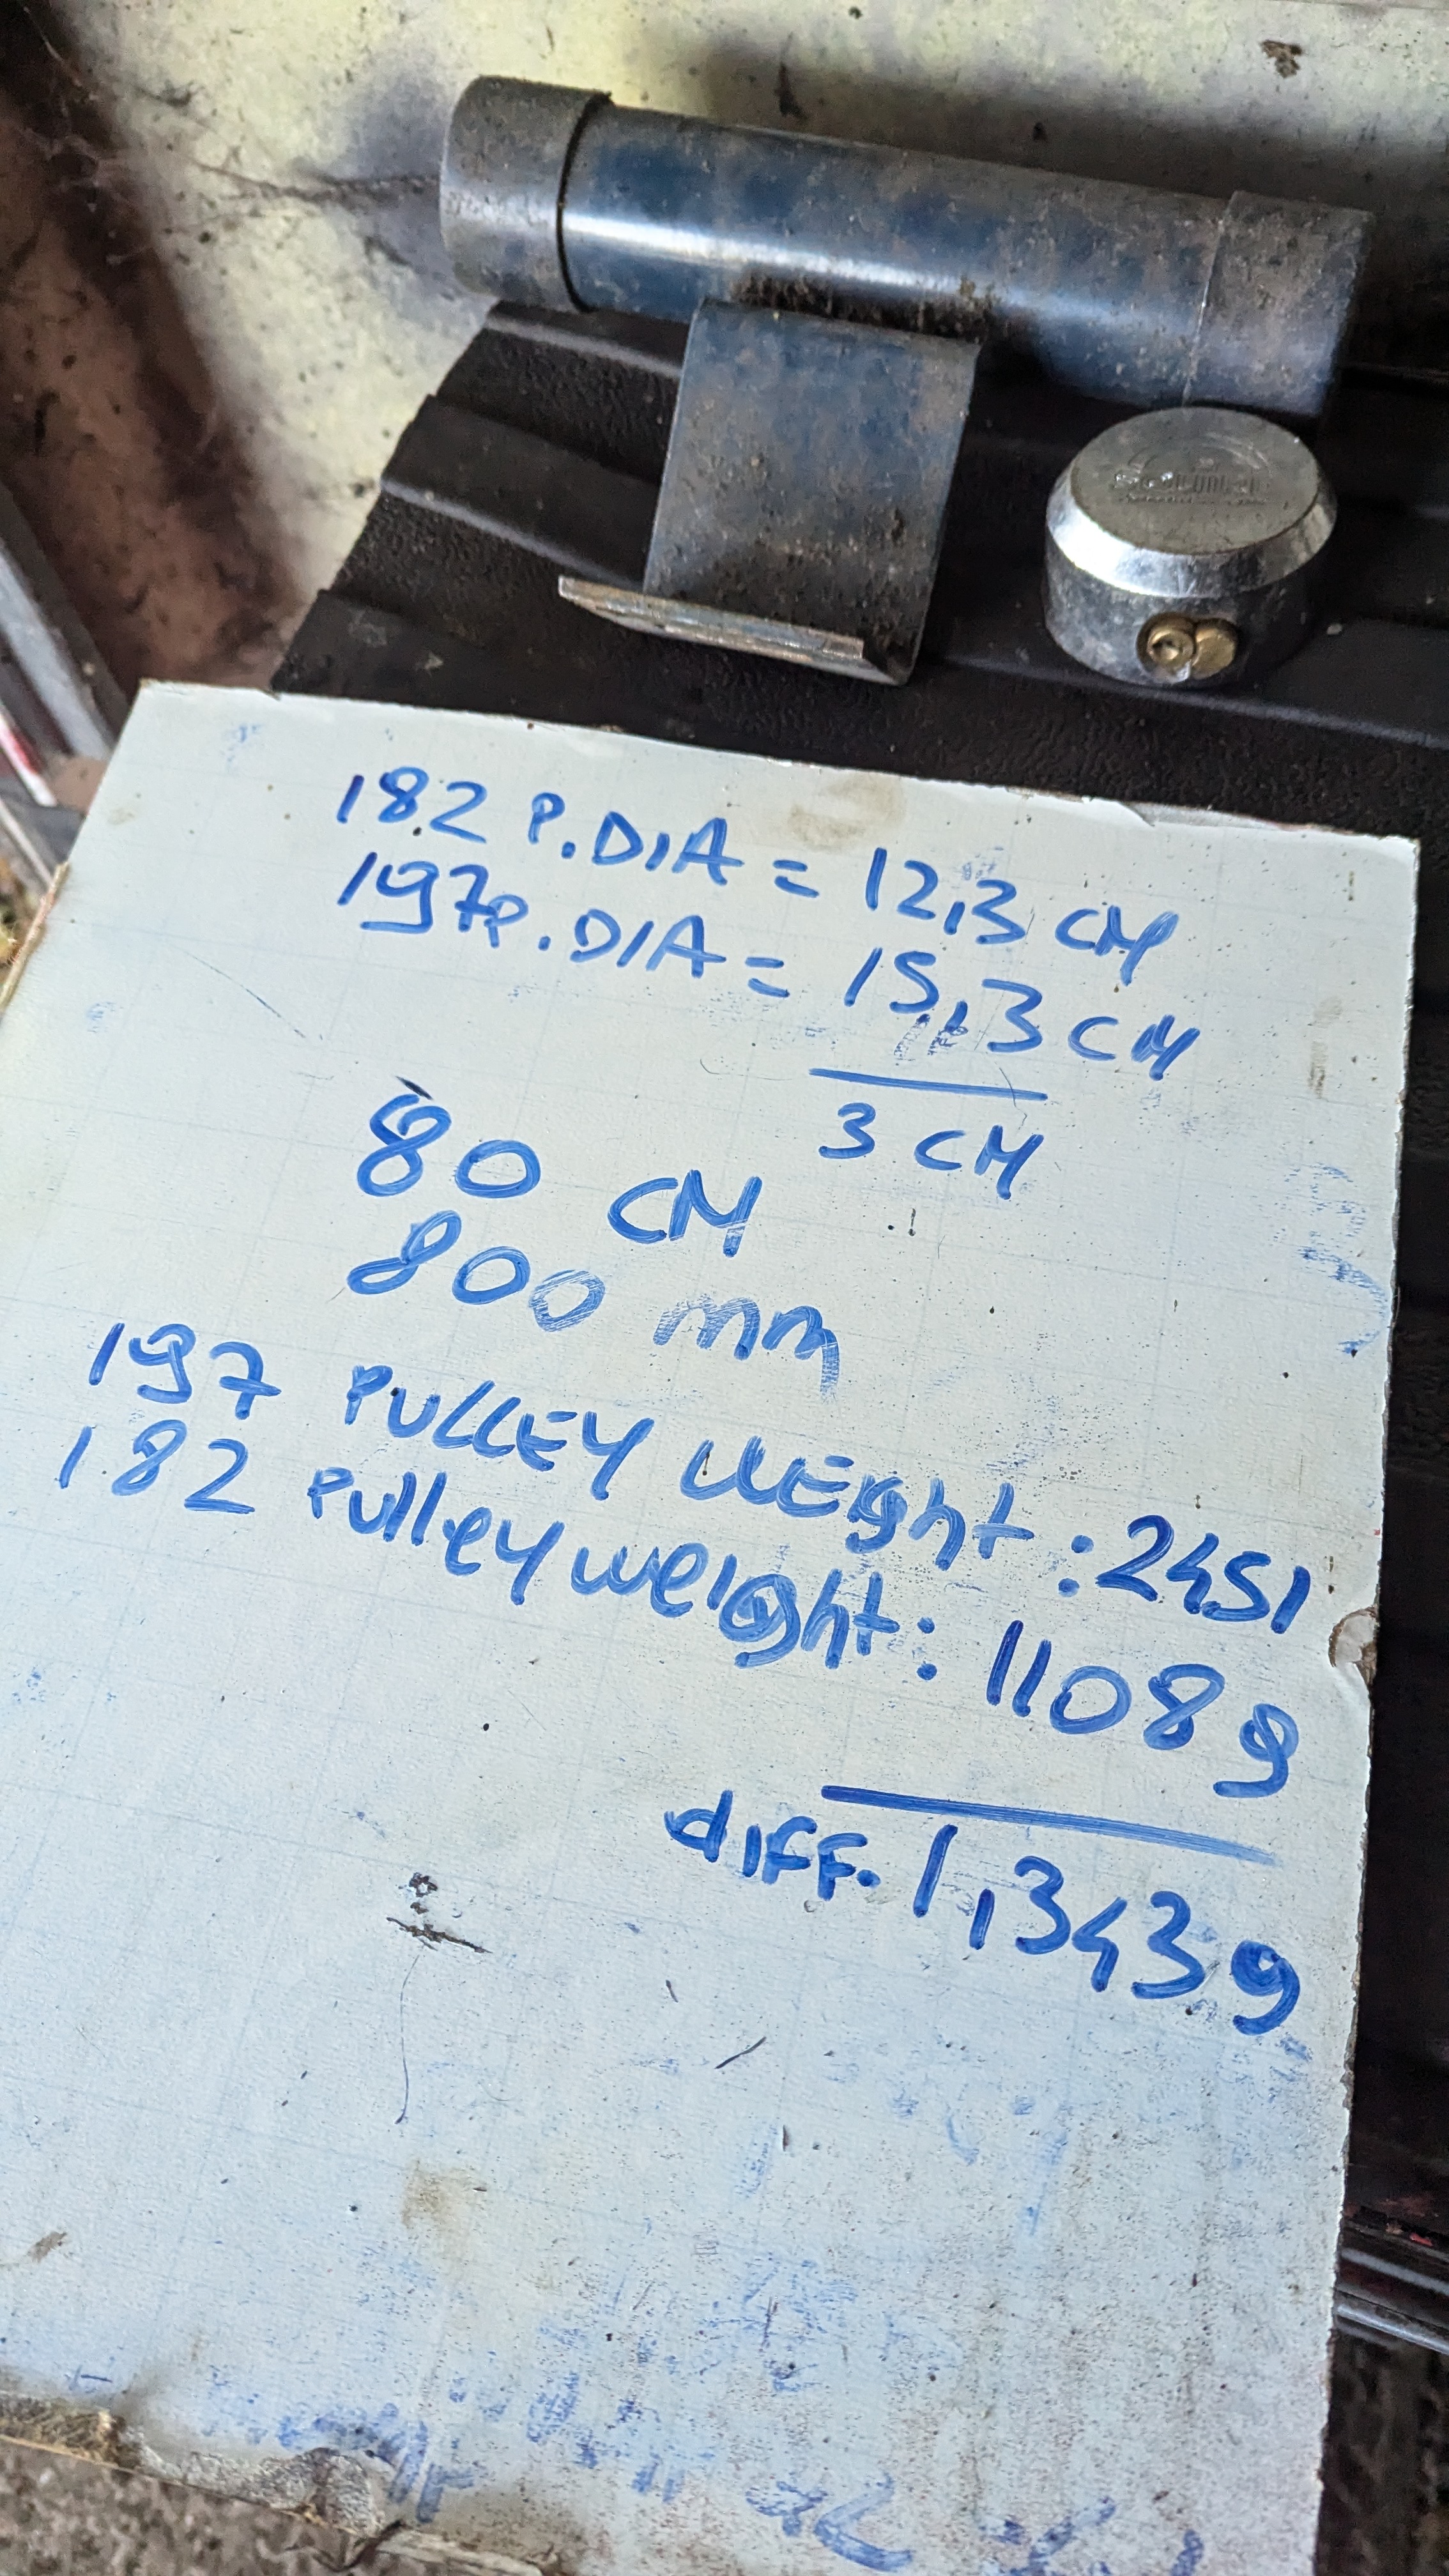 182 P.DIA = 12,3 CM
197 P.DIA = 15,3 CM
3 CM
80 CM
800 mm
197 PULLEY WEIGht : 2451
182 Pulley weight : 1108 g
diFF. 1,343 g